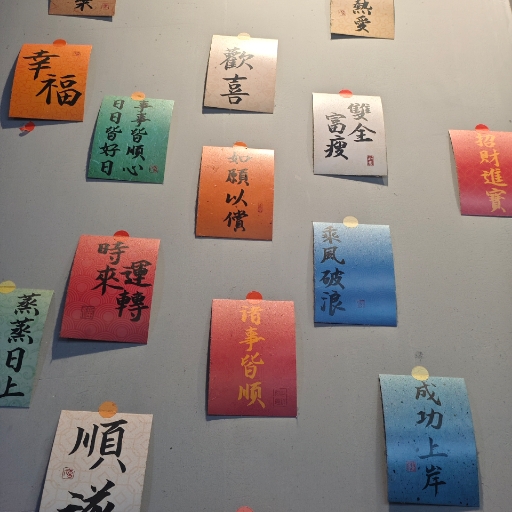 熱愛
幸福
歡喜
事事皆順心
日日皆好日
富瘦
雙全
招財進寶
如願以償
時來
運轉
乘風破浪
蒸蒸日上
諸事皆順
成功上岸
順